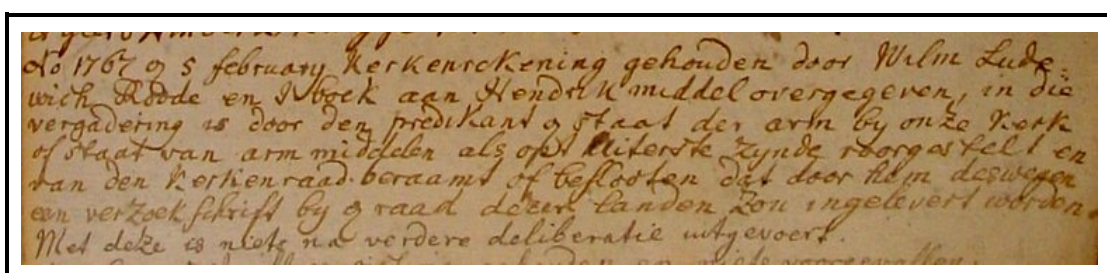 Ao 1767 g 5 february Kerkenrekening gehouden door Wilm Lude=
wich Roode en 't boek aan Hendrik middel overgegeven, in die
vergadering is door den predikant g staat der arm by onze Kerk
of staat van arm middelen als op't uiterste zynde voorgestelt en
van den Kerkenraad beraamt of beslooten dat door hem deswegen
een verzoekschrift by g raad dezer landen zou ingelevert worden.
Met deze is niets na verdere deliberatie uitgevoert.